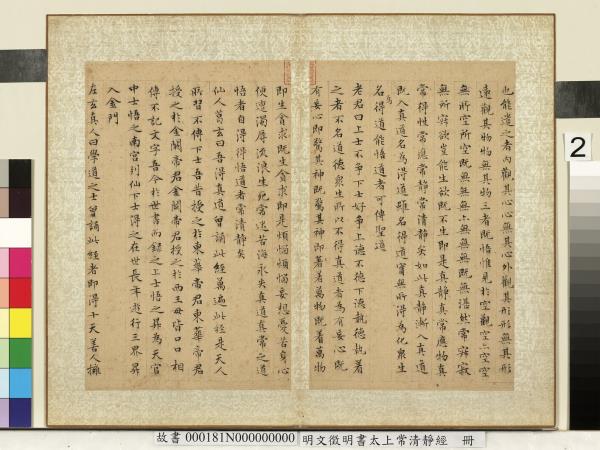 也能遣之者內觀其心心無其心外觀其形形無其形
遠觀其物物無其物三者既悟惟見於空觀空亦空空
無所空所空既無無無亦無無無既無湛然常寂寂
無所寂欲豈能生欲既不生即是真靜真常應物真
常得性常應常靜常清靜矣如此真靜漸入真道
既入真道名為得道雖名得道實無所得為化眾生
名為得道能悟道者可傳聖道
老君曰上士不爭下士好爭上德不德下德執德執著
之者不名道德眾生所以不得真道者為有妄心既
有妄心即驚其神既驚其神即著萬物既著萬物
即生貪求既生貪求即是煩惱煩惱妄想憂苦身心
便遭濁辱流浪生死常沈苦海永失真道真常之道
悟者自得得悟道者常清靜矣
仙人葛玄曰吾得真道曾誦此經萬遍此經是天人
所習不傳下士吾昔授之於東華帝君東華帝君
授之於金闕帝君金闕帝君授之於西王母皆口口相
傳不記文字吾今於世書而錄之上士悟之昇為天官
中士悟之南宮列仙下士得之在世長年遊行三界昇
入金門
左玄真人曰學道之士曾誦此經者即得十天善人擁
2
故書 000181N000000000
明文徵明書太上常清靜經 冊